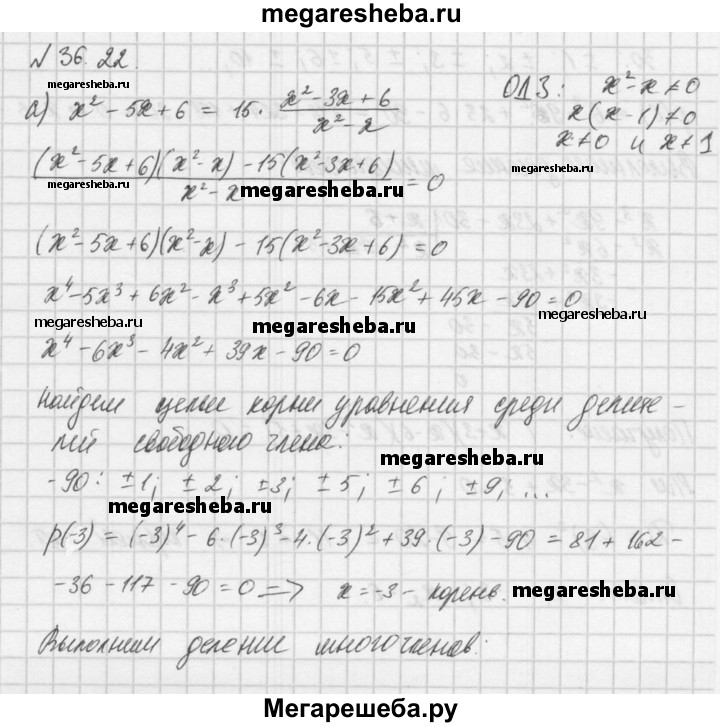 megaresheba.ru
№ 36.22.
megaresheba.ru
а) x² - 5x + 6 = 15 · (x² - 3x + 6)/(x² - x)
ОДЗ: x² - x ≠ 0
x(x - 1) ≠ 0
x ≠ 0 и x ≠ 1
((x² - 5x + 6)(x² - x) - 15(x² - 3x + 6))/(x² - x) = 0
megaresheba.ru
megaresheba.ru
megaresheba.ru
(x² - 5x + 6)(x² - x) - 15(x² - 3x + 6) = 0
x⁴ - 5x³ + 6x² - x³ + 5x² - 6x - 15x² + 45x - 90 = 0
megaresheba.ru
megaresheba.ru
megaresheba.ru
x⁴ - 6x³ - 4x² + 39x - 90 = 0
Найдем целые корни уравнения среди делите-
лей свободного члена:
megaresheba.ru
-90: ±1; ±2; ±3; ±5; ±6; ±9; ...
megaresheba.ru
p(-3) = (-3)⁴ - 6·(-3)³ - 4·(-3)² + 39·(-3) - 90 = 81 + 162 -
- 36 - 117 - 90 = 0 => x = -3 - корень.
megaresheba.ru
Выполним деление многочленов:
Мегарешеба.ру